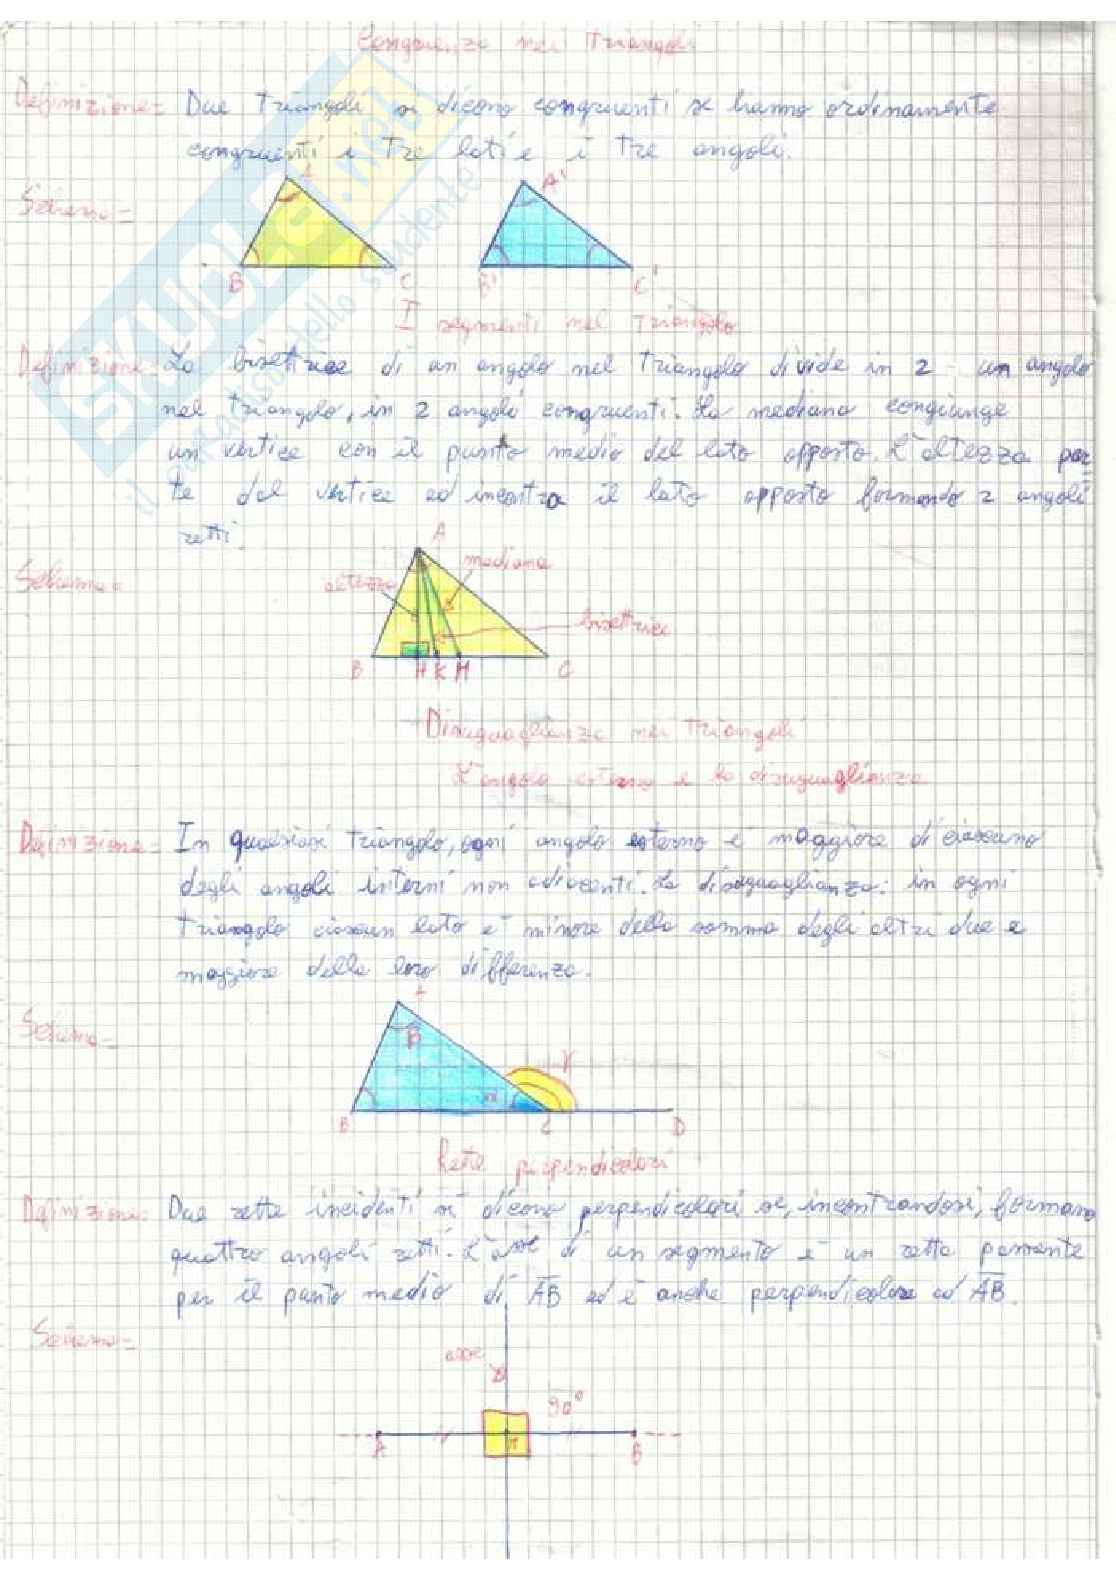 Congruenza nei Triangoli
Definizione= Due Triangoli si dicono congruenti se hanno ordinamente
congruenti i Tre lati e i Tre angoli.
Schema=
A
A'
B
C
B'
C'
I segmenti nel Triangolo
Definizione= La bisettrice di un angolo nel Triangolo divide in 2 un angolo
nel Triangolo, in 2 angoli congruenti. La mediana congiunge
un vertice con il punto medio del lato opposto. L'altezza par=
te dal vertice ed incontra il lato opposto formando 2 angoli
retti.
Schema=
A
altezza
mediana
bisettrice
B
H
K
M
C
Disuguaglianza nei Triangoli
L'angolo esterno e la disuguaglianza
Definizione= In qualsiasi Triangolo, ogni angolo esterno è maggiore di ciascuno
degli angoli interni non adiacenti. La disuguaglianza: in ogni
Triangolo ciascun lato è minore della somma degli altri due e
maggiore della loro differenza.
Schema=
A
β
γ
α
B
C
D
Rette perpendicolari
Definizione= Due rette incidenti si dicono perpendicolari se, incontrandosi, formano
quattro angoli retti. L'asse di un segmento è un retta passante
per il punto medio di AB ed è anche perpendicolare ad AB.
Schema=
asse
90°
A
M
B
SKUOLA.net
il paradiso dello studente